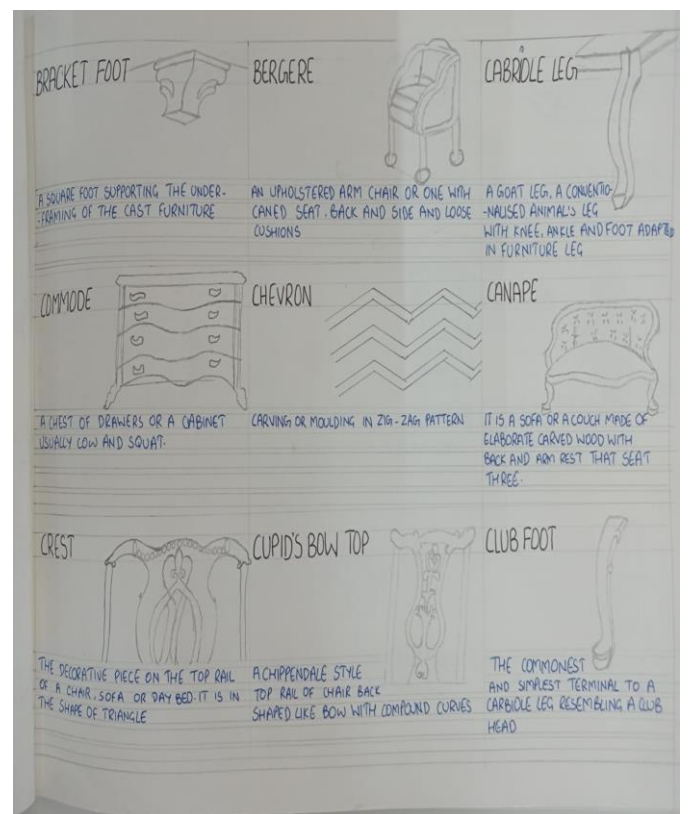 BRACKET FOOT
A SQUARE FOOT SUPPORTING THE UNDER-
-FRAMING OF THE CAST FURNITURE
BERGERE
AN UPHOLSTERED ARM CHAIR OR ONE WITH
CANED SEAT. BACK AND SIDE AND LOOSE
CUSHIONS
CABRIOLE LEG
A GOAT LEG, A CONVENTIO-
-NALISED ANIMAL'S LEG
WITH KNEE, ANKLE AND FOOT ADAPTED
IN FURNITURE LEG
COMMODE
A CHEST OF DRAWERS OR A CABINET
USUALLY LOW AND SQUAT.
CHEVRON
CARVING OR MOULDING IN ZIG-ZAG PATTERN
CANAPE
IT IS A SOFA OR A COUCH MADE OF
ELABORATE CARVED WOOD WITH
BACK AND ARM REST THAT SEAT
THREE.
CREST
THE DECORATIVE PIECE ON THE TOP RAIL
OF A CHAIR, SOFA OR DAY BED. IT IS IN
THE SHAPE OF TRIANGLE
CUPID'S BOW TOP
A CHIPPENDALE STYLE
TOP RAIL OF CHAIR BACK
SHAPED LIKE BOW WITH COMPOUND CURVES
CLUB FOOT
THE COMMONEST
AND SIMPLEST TERMINAL TO A
CARBIOLE LEG RESEMBLING A CLUB
HEAD